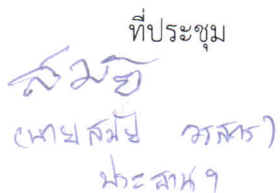 ที่ประชุม
สมัย
(นายสมัย วรสาร)
ประธานฯ